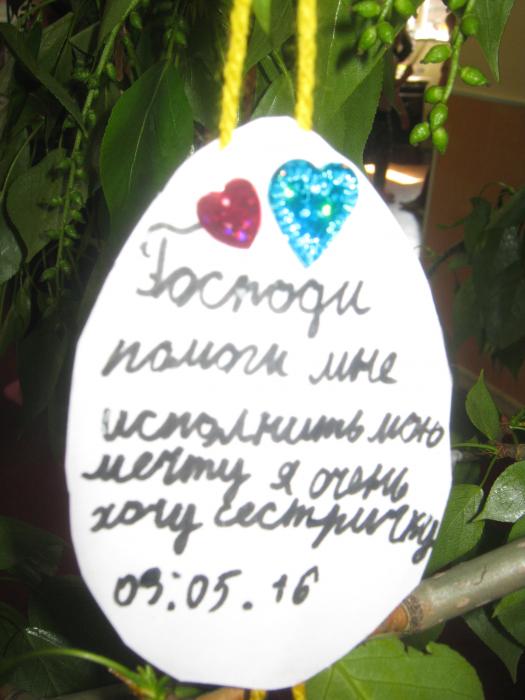 Господи
помоги мне
исполнить мою
мечту я очень
хочу сестричку
09:05.16